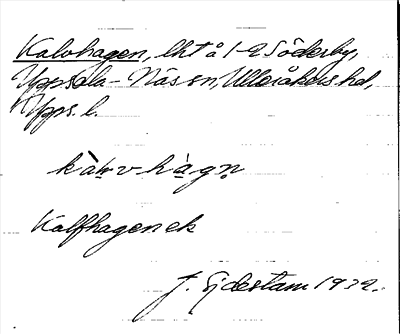 Kalvhagen, lht å 1-2 Söderby,
Uppsala-Näs sn, Ulleråkers hd,
Upps. l.
kàlvhàgn
Kalfhagen ek
J. Ejdestam 1932.